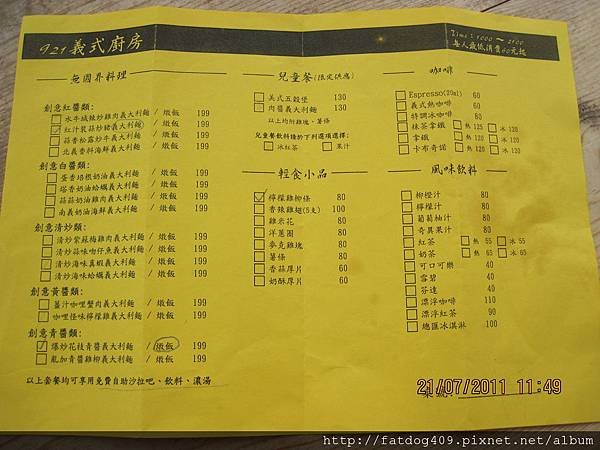 921義式廚房
Time：1000～2100
每人最低消費60元起
無國界料理
創意紅醬類：
水牛城辣炒雞肉義大利麵 / 燉飯 199
紅汁莨蒜炒豬義大利麵 / 燉飯 199
蒜香松露炒牛義大利麵 / 燉飯 199
北義香料海鮮義大利麵 / 燉飯 199
創意白醬類：
蛋香培根奶油義大利麵 / 燉飯 199
塔香奶油蛤蠣義大利麵 / 燉飯 199
蒜菇奶油雞肉義大利麵 / 燉飯 199
南義奶油海鮮義大利麵 / 燉飯 199
創意清炒類：
清炒紫蘇梅雞肉義大利麵 / 燉飯 199
清炒蒜味吻仔魚義大利麵 / 燉飯 199
清炒海味真蝦義大利麵 / 燉飯 199
清炒海味蛤蠣義大利麵 / 燉飯 199
創意黃醬類：
薑汁咖哩蟹肉義大利麵 / 燉飯 199
咖哩怪味檸檬雞義大利麵 / 燉飯 199
創意青醬類：
爆炒花枝青醬義大利麵 / 燉飯 199
亂加青醬雞柳義大利麵 / 燉飯 199
以上套餐均可享用免費自助沙拉吧、飲料、濃湯
兒童餐(限定供應)
美式五穀堡 130
肉醬義大利麵 130
以上均附雞塊、薯條
兒童餐飲料請於下列選項選擇：
冰紅茶 果汁
輕食小品
檸檬雞柳條 80
香辣雞翅(5支) 100
雞米花 80
洋蔥圈 80
麥克雞塊 80
薯條 80
香蒜厚片 60
奶酥厚片 60
咖啡
Espresso(20ml) 60
義式熱咖啡 60
特調冰咖啡 80
抹茶拿鐵 熱 125 冰 120
拿鐵 熱 120 冰 120
卡布奇諾 熱 120 冰 120
風味飲料
柳橙汁 80
檸檬汁 80
葡萄柚汁 80
奇異果汁 80
紅茶 熱 55 冰 55
奶茶 熱 65 冰 65
可口可樂 40
雪碧 40
芬達 40
漂浮咖啡 110
漂浮紅茶 90
總匯冰淇淋 100
21/07/2011 11:49
http://fatdog409.pixnet.net/album